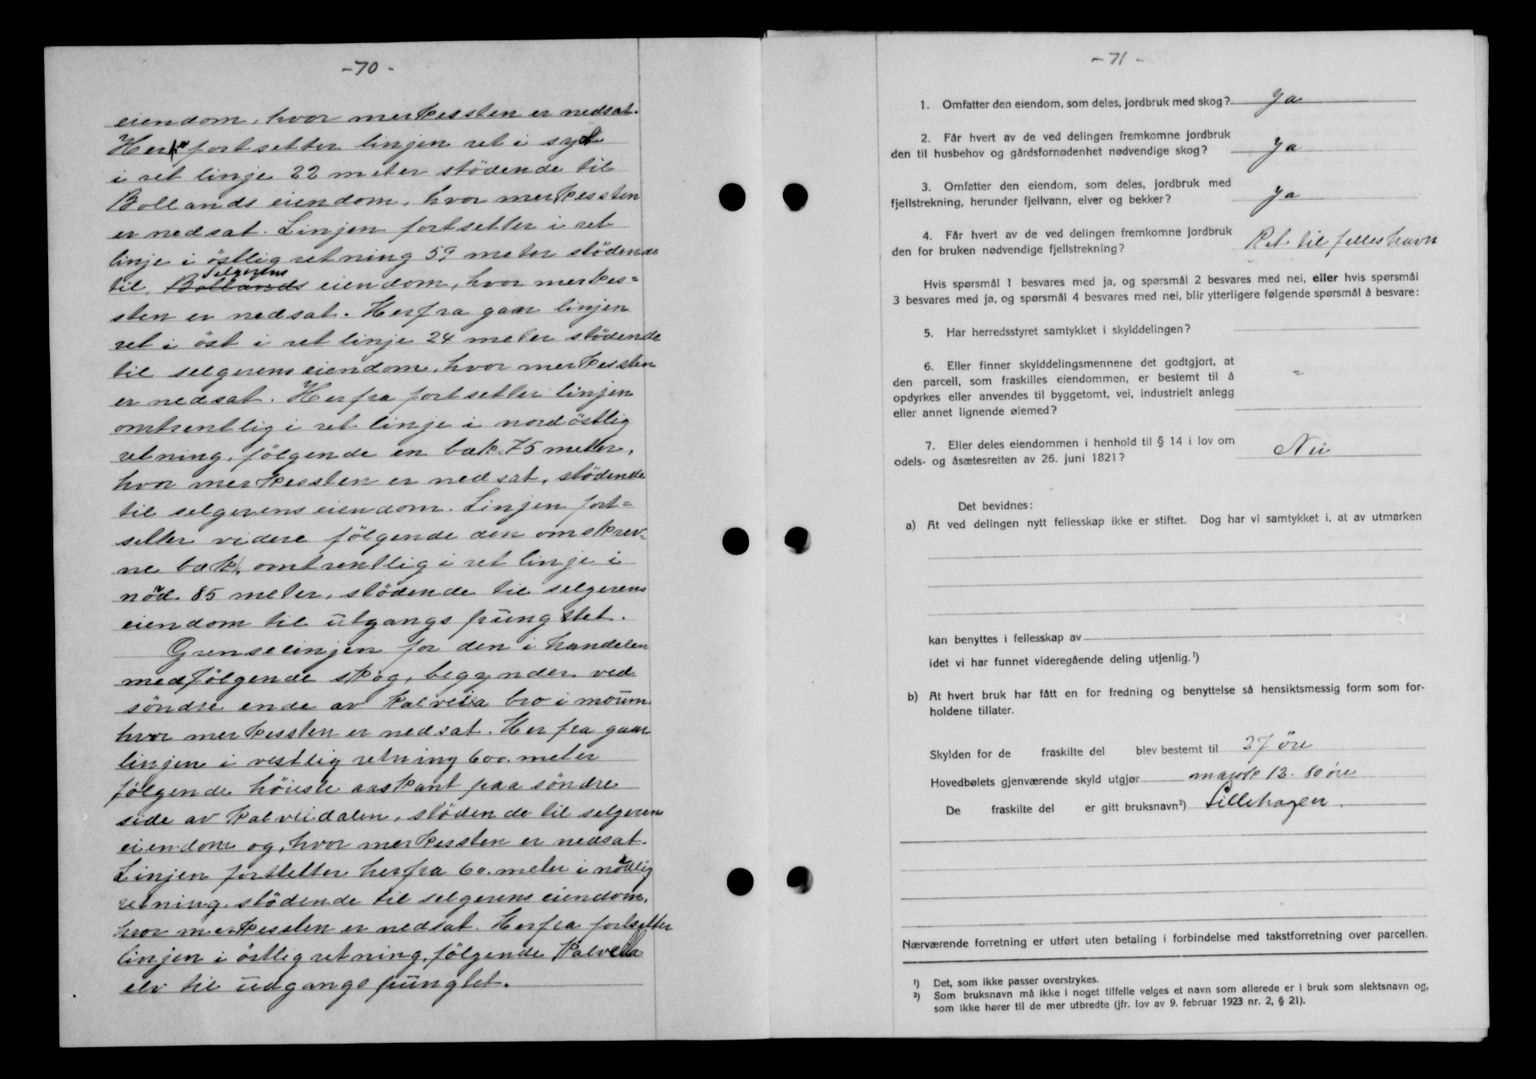 -70-
eiendom, hvor merkessten er nedsat.
Herfra fortsetter linjen ret i syd
i ret linje 22 meter stödende til
Bollands eiendom, hvor merkessten
er nedsat. Linjen fortsetter i ret
linje i östlig retning 59 meter stödende
til selgerens Bollands eiendom, hvor merkes=
sten er nedsat. Herfra gaar linjen
ret i öst i ret linje 24 meter stödende
til selgerens eiendom, hvor merkessten
er nedsat. Herfra fortsetter linjen
omtrentlig i ret linje i nordöstlig
retning, fölgende en bæk 75 meter,
hvor merkessten er nedsat, stödende
til selgerens eiendom. Linjen fort=
setter videre fölgende den omskrev=
ne bæk, omtrentlig i ret linje i
nörd 85 meter, stödende til selgerens
eiendom til utgangspungtet.
Grenselinjen for den i handelen
medfölgende skog, begynder ved
söndre ende av Kalveia bro i moum
hvor merkessten er nedsat. Herfra gaar
linjen i vestlig retning 600 meter
fölgende höieste aaskant paa söndre
side av Kalveidalen, stödende til selgerens
eiendom og, hvor merkessten er nedsat.
Linjen fortsetter herfra 60 meter i nördlig
retning, stödende til selgerens eiendom,
hvor merkessten er nedsat. Herfra fortsetter
linjen i östlig retning, fölgende Kalveia
elv til udgangspungtet.
-71-
1. Omfatter den eiendom, som deles, jordbruk med skog? Ja
2. Får hvert av de ved delingen fremkomne jordbruk
den til husbehov og gårdsfornødenhet nødvendige skog? Ja
3. Omfatter den eiendom, som deles, jordbruk med
fjellstrekning, herunder fjellvann, elver og bekker? Ja
4. Får hvert av de ved delingen fremkomne jordbruk
den for bruken nødvendige fjellstrekning? Ret til felleshavn
Hvis spørsmål 1 besvares med ja, og spørsmål 2 besvares med nei, eller hvis spørsmål
3 besvares med ja, og spørsmål 4 besvares med nei, blir ytterligere følgende spørsmål å besvare:
5. Har herredsstyret samtykket i skylddelingen?
6. Eller finner skylddelingsmennene det godtgjort, at
den parcell, som fraskilles eiendommen, er bestemt til å
opdyrkes eller anvendes til byggetomt, vei, industrielt anlegg
eller annet lignende øiemed? "
7. Eller deles eiendommen i henhold til § 14 i lov om
odels- og åsætesretten av 26. juni 1821? Nei
Det bevidnes:
a) At ved delingen nytt fellesskap ikke er stiftet. Dog har vi samtykket i, at av utmarken
kan benyttes i fellesskap av
idet vi har funnet videregående deling utjenlig.¹)
b) At hvert bruk har fått en for fredning og benyttelse så hensiktsmessig form som for-
holdene tillater.
Skylden for de fraskilte del blev bestemt til 37 öre
Hovedbølets gjenværende skyld utgjør mark 13. 80 öre
De fraskilte del er gitt bruksnavn²) Lillehagen.
Nærværende forretning er utført uten betaling i forbindelse med takstforretning over parcellen.
¹) Det, som ikke passer overstrykes.
²) Som bruksnavn må ikke i noget tilfelle velges et navn som allerede er i bruk som slektsnavn og,
som ikke hører til de mer utbredte (jfr. lov av 9. februar 1923 nr. 2, § 21).